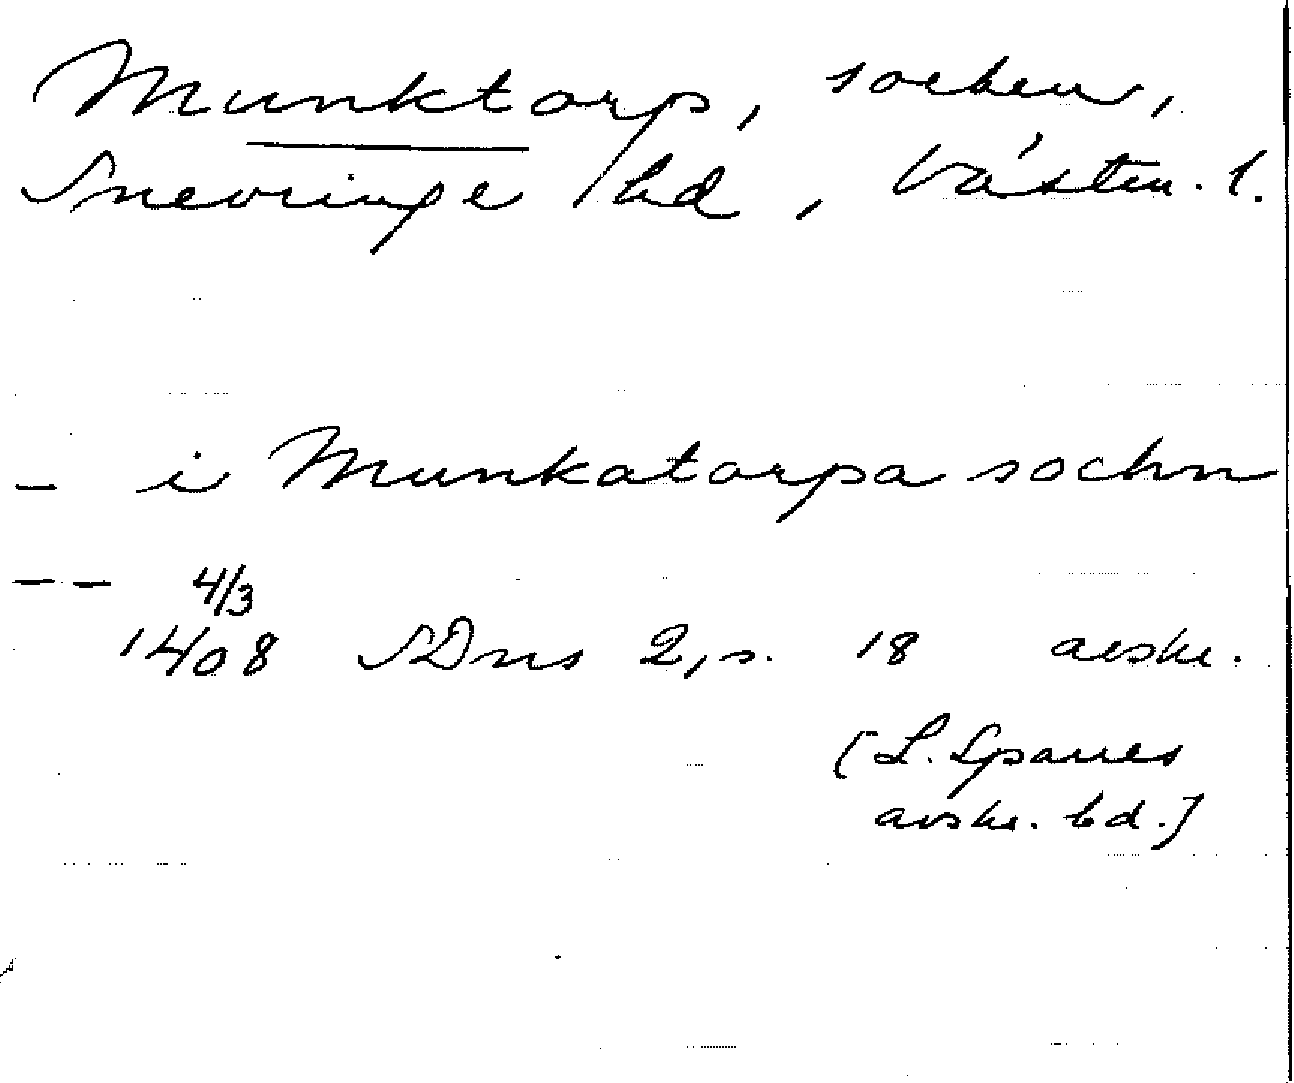 Munktorp, socken,
Snevringe hd, Västm. l.
- i Munkatorpa sochn
- - 4/3
1408 SDns 2, s. 18 avskr.
[L. Sparres
avskr. bd.]